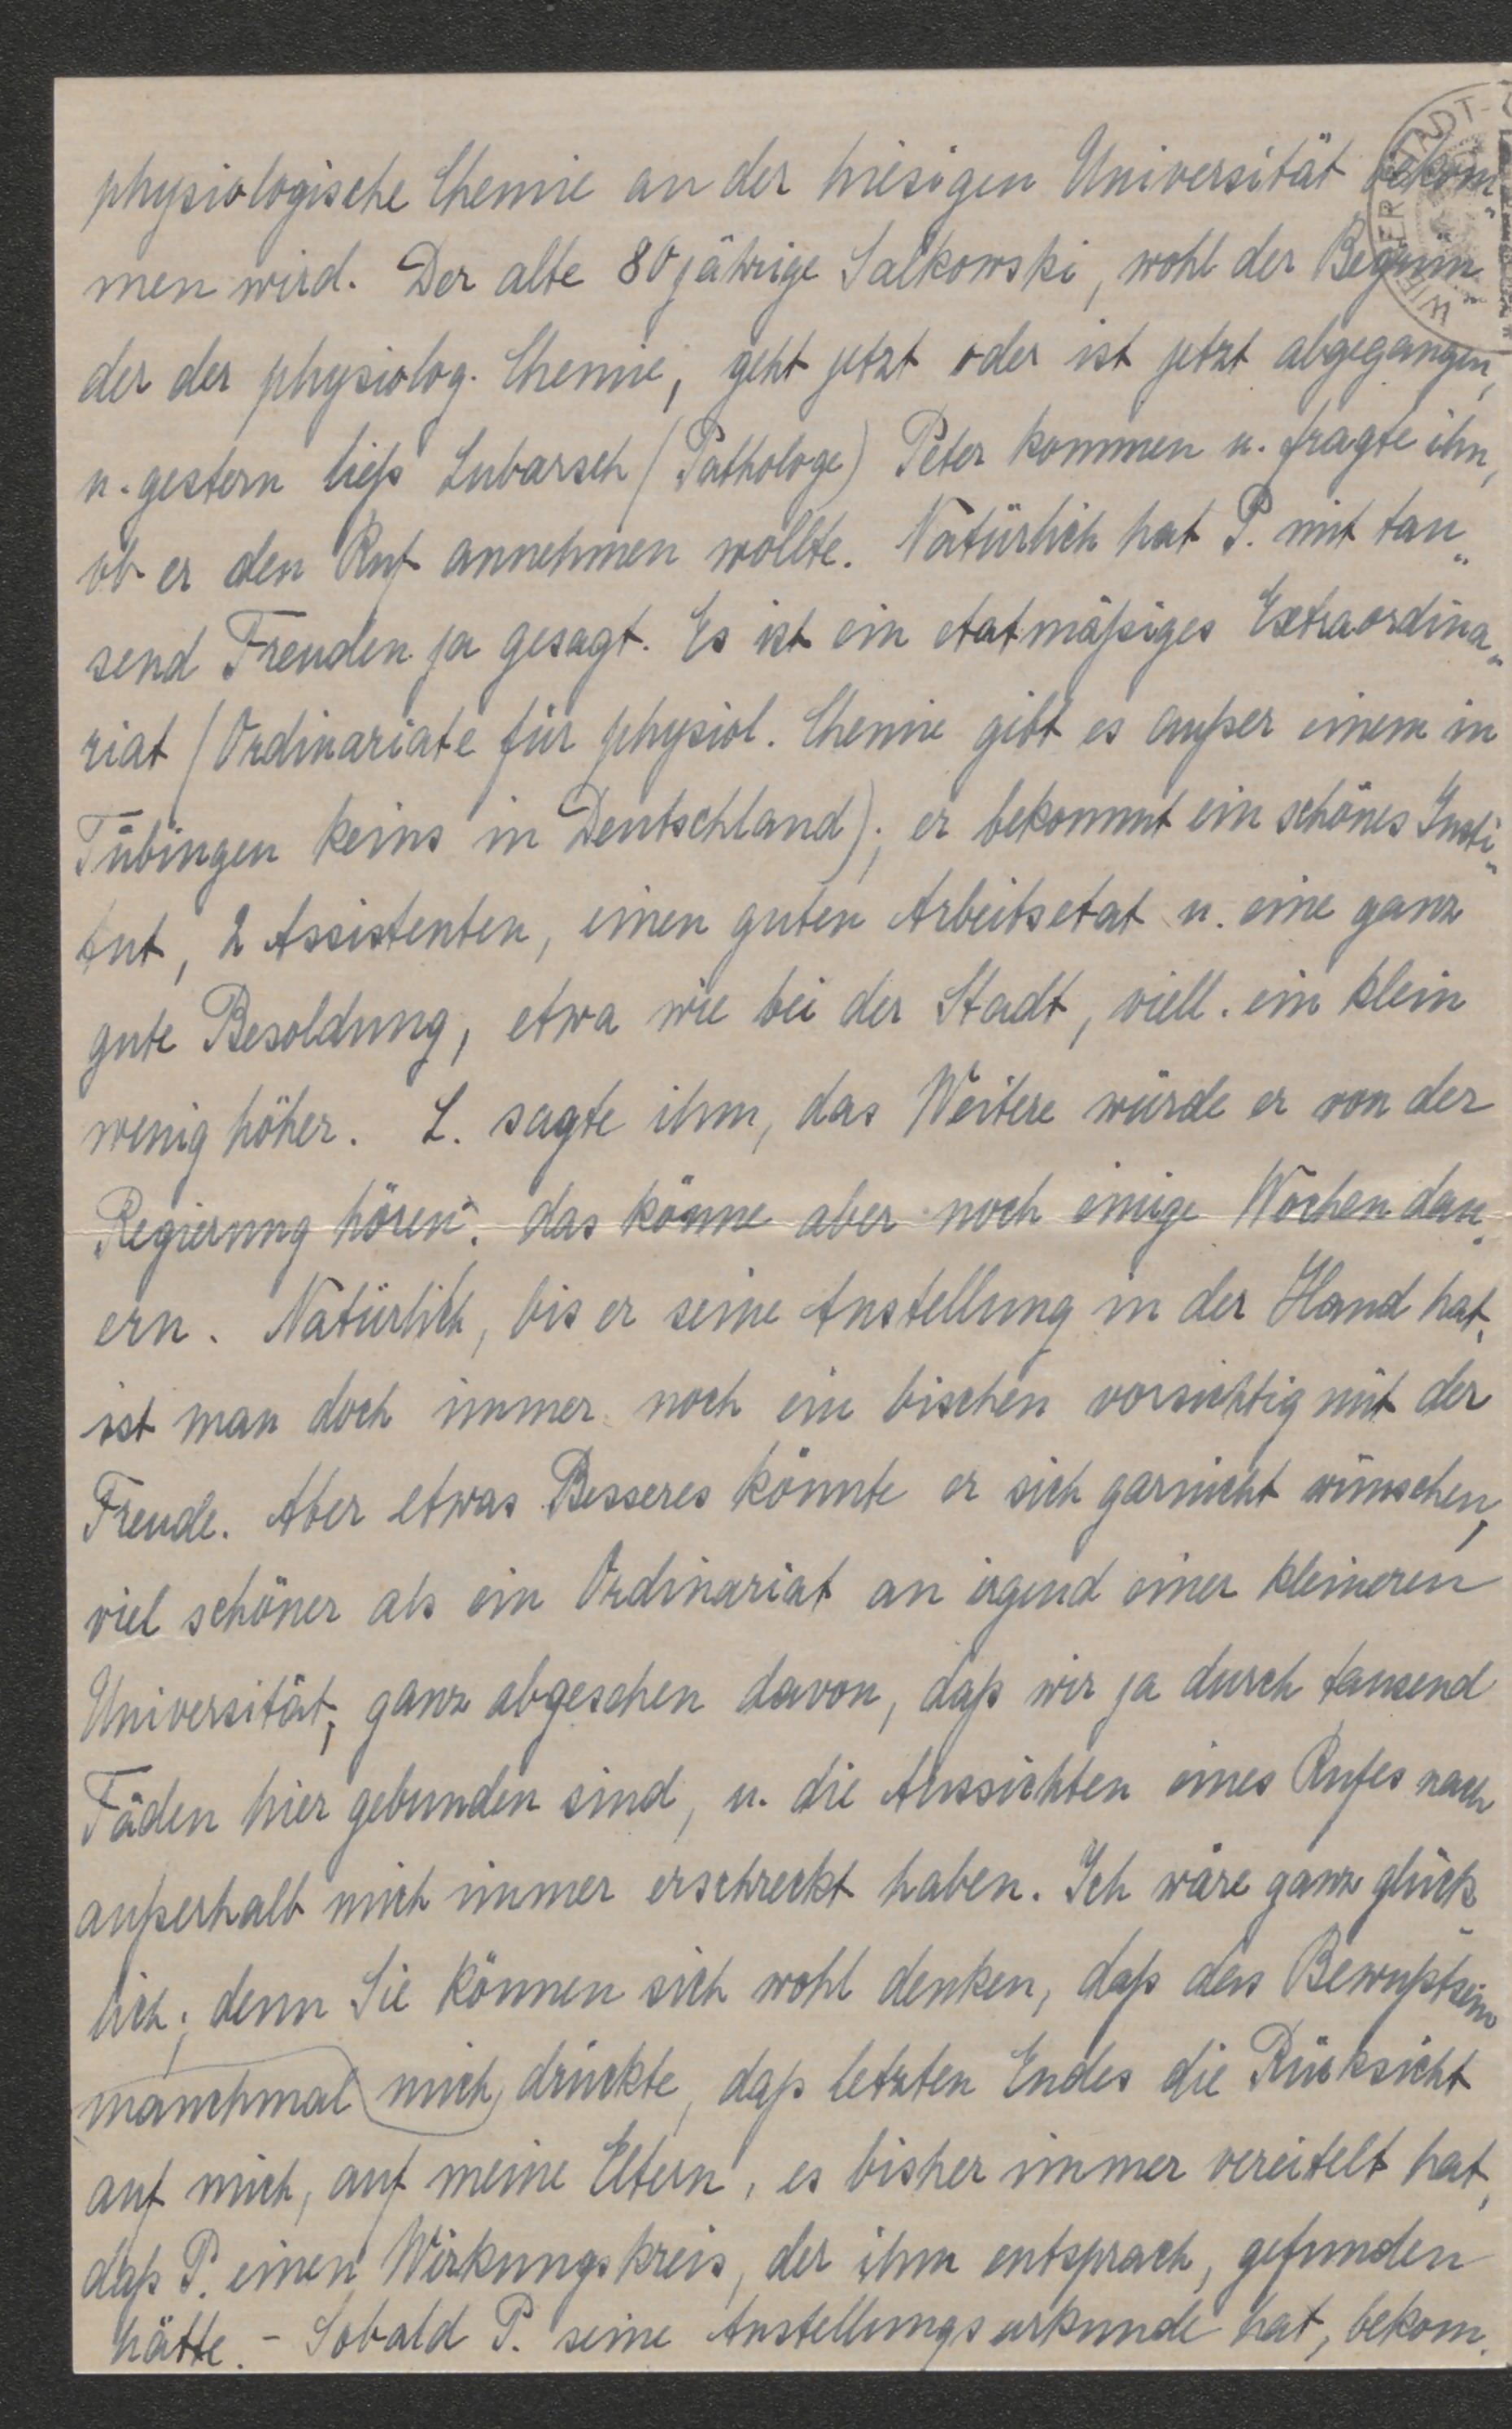 physiologische Chemie an der hiesigen Universität bekom„
men wird. Der alte 80jährige Salkowski, wohl der Begrün„
der der physiolog. Chemie, geht jetzt oder ist jetzt abgegangen,
u. gestern ließ Lubarsch (Pathologe) Peter kommen u. fragte ihn,
ob er den Ruf annehmen wollte. Natürlich hat P. mit tau„
send Freuden ja gesagt. Es ist ein etatmäßiges Extraordina„
riat (Ordinariate für physiol. Chemie gibt es außer einem in
Tübingen keins in Deutschland); er bekommt ein schönes Insti„
tut, 2 Assistenten, einen guten Arbeitsetat u. eine ganz
gute Besoldung, etwa wie bei der Stadt, viell. ein klein
wenig höher. L. sagte ihm, das Weitere würde er von der
Regierung hören; das könne aber noch einige Wochen dau„
ern. Natürlich, bis er seine Anstellung in der Hand hat,
ist man doch immer noch ein bischen vorsichtig mit der
Freude. Aber etwas Besseres könnte er sich garnicht wünschen,
viel schöner als ein Ordinariat an irgend einer kleineren
Universität, ganz abgesehen davon, daß wir ja durch tausend
Fäden hier gebunden sind, u. die Aussichten eines Rufes nach
außerhalb mich immer erschreckt haben. Ich wäre ganz glück
lich; denn Sie können sich wohl denken, daß das Bewußtsein
manchmal mich drückte, daß letzten Endes die Rücksicht
auf mich, auf meine Eltern, es bisher immer vereitelt hat,
daß P. einen Wirkungskreis, der ihm entsprach, gefunden
hätte. – Sobald P. seine Anstellungsurkunde hat, bekom„
WIENER STADT-